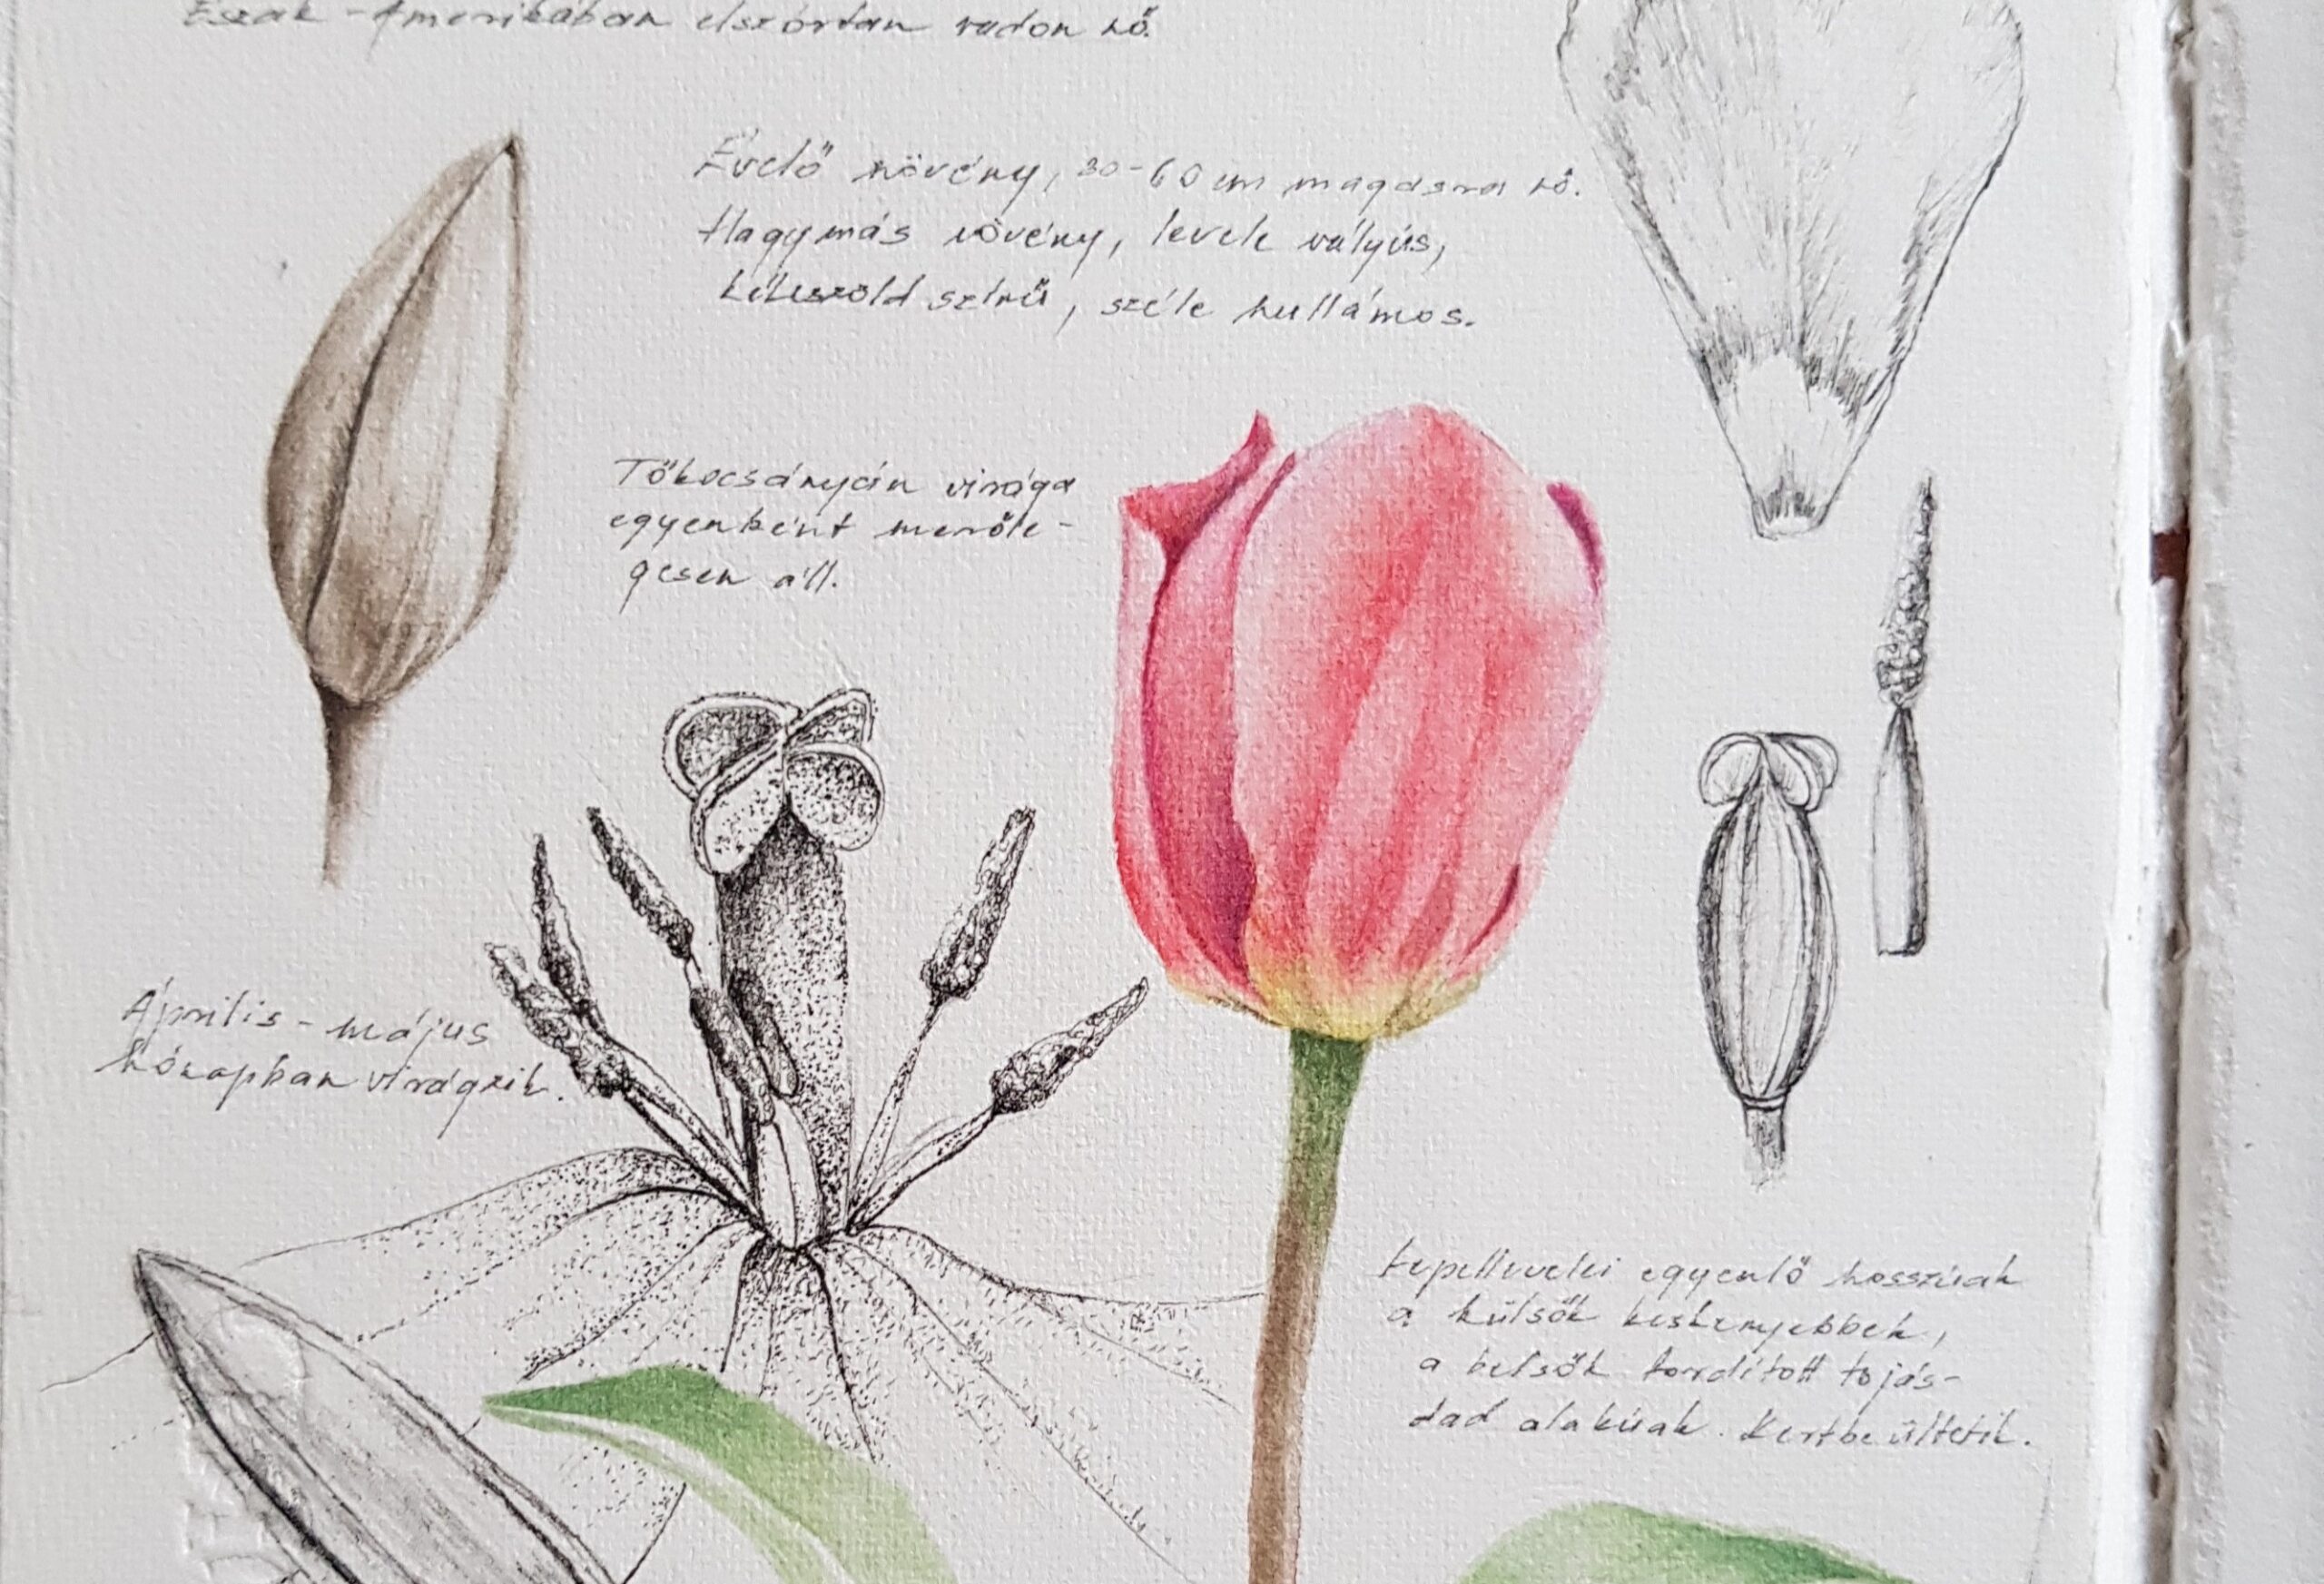 Észak-Amerikában elszórtan vadon nő.
Évelő növény, 30-60 cm magasra nő.
Hagymás növény, levele vályús,
kékeszöld színű, széle hullámos.
Tőkocsányán virága
egyenként merőle-
gesen áll.
Április - május
hónapban virágzik.
Lepellevelei egyenlő hosszúak
a külsők keskenyebbek,
a belsők fordított tojás-
dad alakúak. Kertbe ültetik.